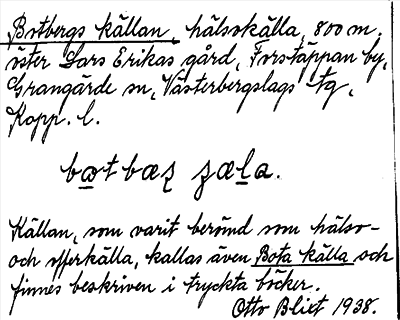 Botbergs källan, hälsokälla, 800 m.
öster Lars Erikas gård, Forstäppan by,
Grangärde sn, Västerbergslags tg,
Kopp. l.
bœt bæʐ ʐæla.
Källan, som varit berömd som hälso-
och offerkälla, kallas även Bota källa och
finnes beskriven i tryckta böcker.
Otto Blixt 1938.